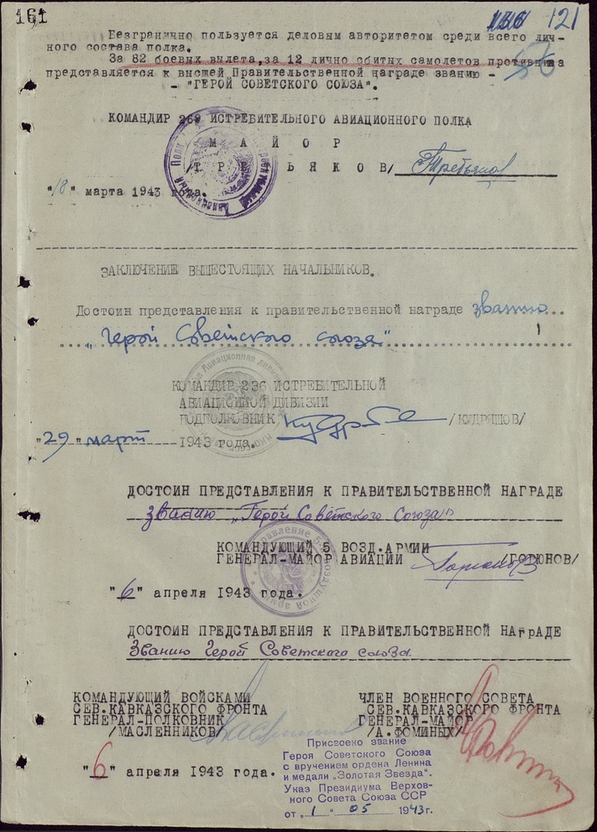 161
121
Безгранично пользуется деловым авторитетом среди всего лич-
ного состава полка.
За 82 боевых вылета, за 12 лично сбитых самолетов противника
представляется к высшей Правительственной награде званию -
- "ГЕРОЙ СОВЕТСКОГО СОЮЗА".
КОМАНДИР 269 ИСТРЕБИТЕЛЬНОГО АВИАЦИОННОГО ПОЛКА
М А Й О Р
/ТРЕТЬЯКОВ/ Третьяков
"18" марта 1943 года.
ЗАКЛЮЧЕНИЕ ВЫШЕСТОЯЩИХ НАЧАЛЬНИКОВ.
Достоин представления к правительственной награде званию
"Герой Советского Союза"
КОМАНДИР 236 ИСТРЕБИТЕЛЬНОЙ
АВИАЦИОННОЙ ДИВИЗИИ
ПОДПОЛКОВНИК /КУДРЯШОВ/
"29" март 1943 года.
ДОСТОИН ПРЕДСТАВЛЕНИЯ К ПРАВИТЕЛЬСТВЕННОЙ НАГРАДЕ
званию "Герой Советского Союза"
КОМАНДУЮЩИЙ 5 ВОЗД.АРМИИ
ГЕНЕРАЛ-МАЙОР АВИАЦИИ /ГОРЮНОВ/
"6" апреля 1943 года.
ДОСТОИН ПРЕДСТАВЛЕНИЯ К ПРАВИТЕЛЬСТВЕННОЙ НАГРАДЕ
Званию Герой Советского союза
КОМАНДУЮЩИЙ ВОЙСКАМИ
СЕВ.КАВКАЗСКОГО ФРОНТА
ГЕНЕРАЛ-ПОЛКОВНИК
/МАСЛЕННИКОВ/
ЧЛЕН ВОЕННОГО СОВЕТА
СЕВ.КАВКАЗСКОГО ФРОНТА
ГЕНЕРАЛ-МАЙОР
/А.ФОМИНЫХ/
"6" апреля 1943 года.
Присвоено звание
Героя Советского Союза
с вручением ордена Ленина
и медали „Золотая Звезда".
Указ Президиума Верхов-
ного Совета Союза ССР
от „ 1 " 05 1943г.